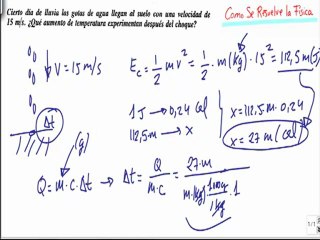 Cierto día de lluvia las gotas de agua llegan al suelo con una velocidad de
15 m/s. ¿Qué aumento de temperatura experimentan después del choque?
Como Se Resuelve la Física
V = 15 m/s
Ec = 1/2 m v² = 1/2 · m(kg) · 15² = 112,5 m(J)
1 J → 0,24 cal
112,5·m → x
x = 112,5·m·0,24
x = 27 m (cal)
Δt
(g)
Q = m·c·Δt → Δt = Q/(m·c) = 27·m/(m·(kg) 1000g/1kg · 1)
1/1